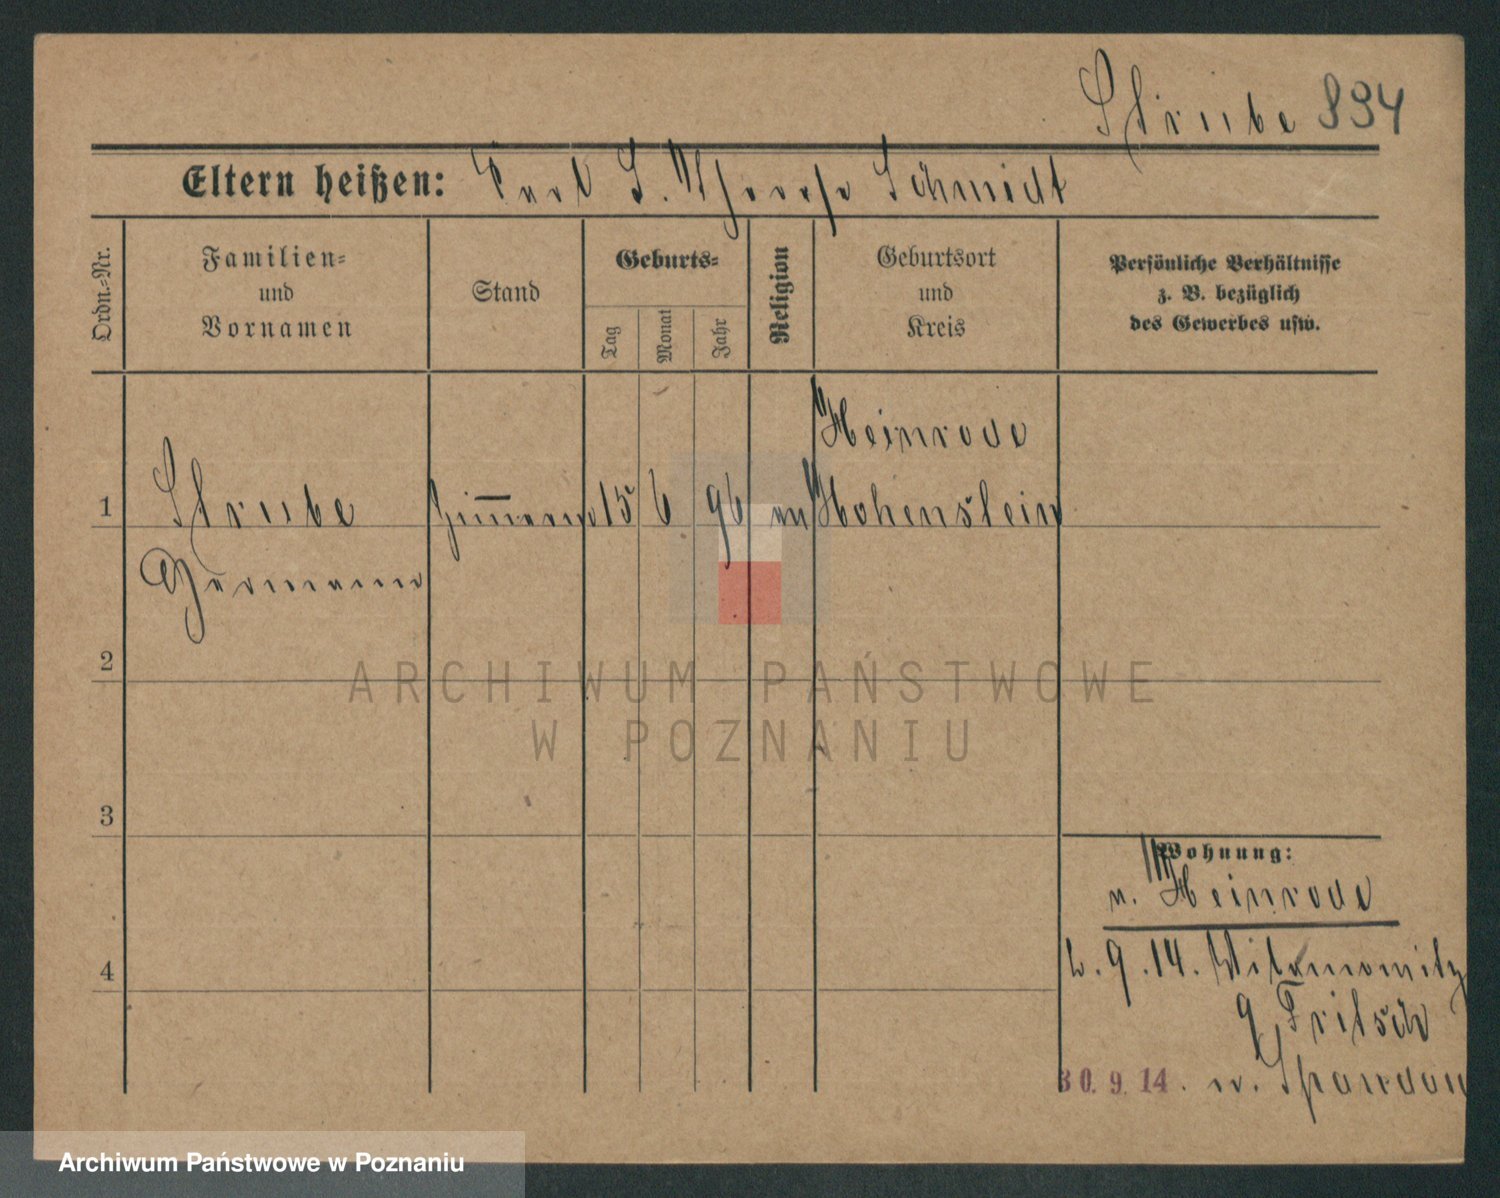 Strube 894
Eltern heißen: Karl S. Therese Schmidt
Ordn.-Nr.
Familien-
und
Vornamen
Stand
Geburts-
Tag
Monat
Jahr
Religion
Geburtsort
und
Kreis
Persönliche Verhältnisse
z. B. bezüglich
des Gewerbes usw.
Heinrode
1 Strube 15 6 96 Hohenstein
Hermann
2
ARCHIWUM PAŃSTWOWE
W POZNANIU
3
Wohnung:
n. Heinrode
4
9.14.
9 Fritsch
30.9.14. n. Spandau
Archiwum Państwowe w Poznaniu